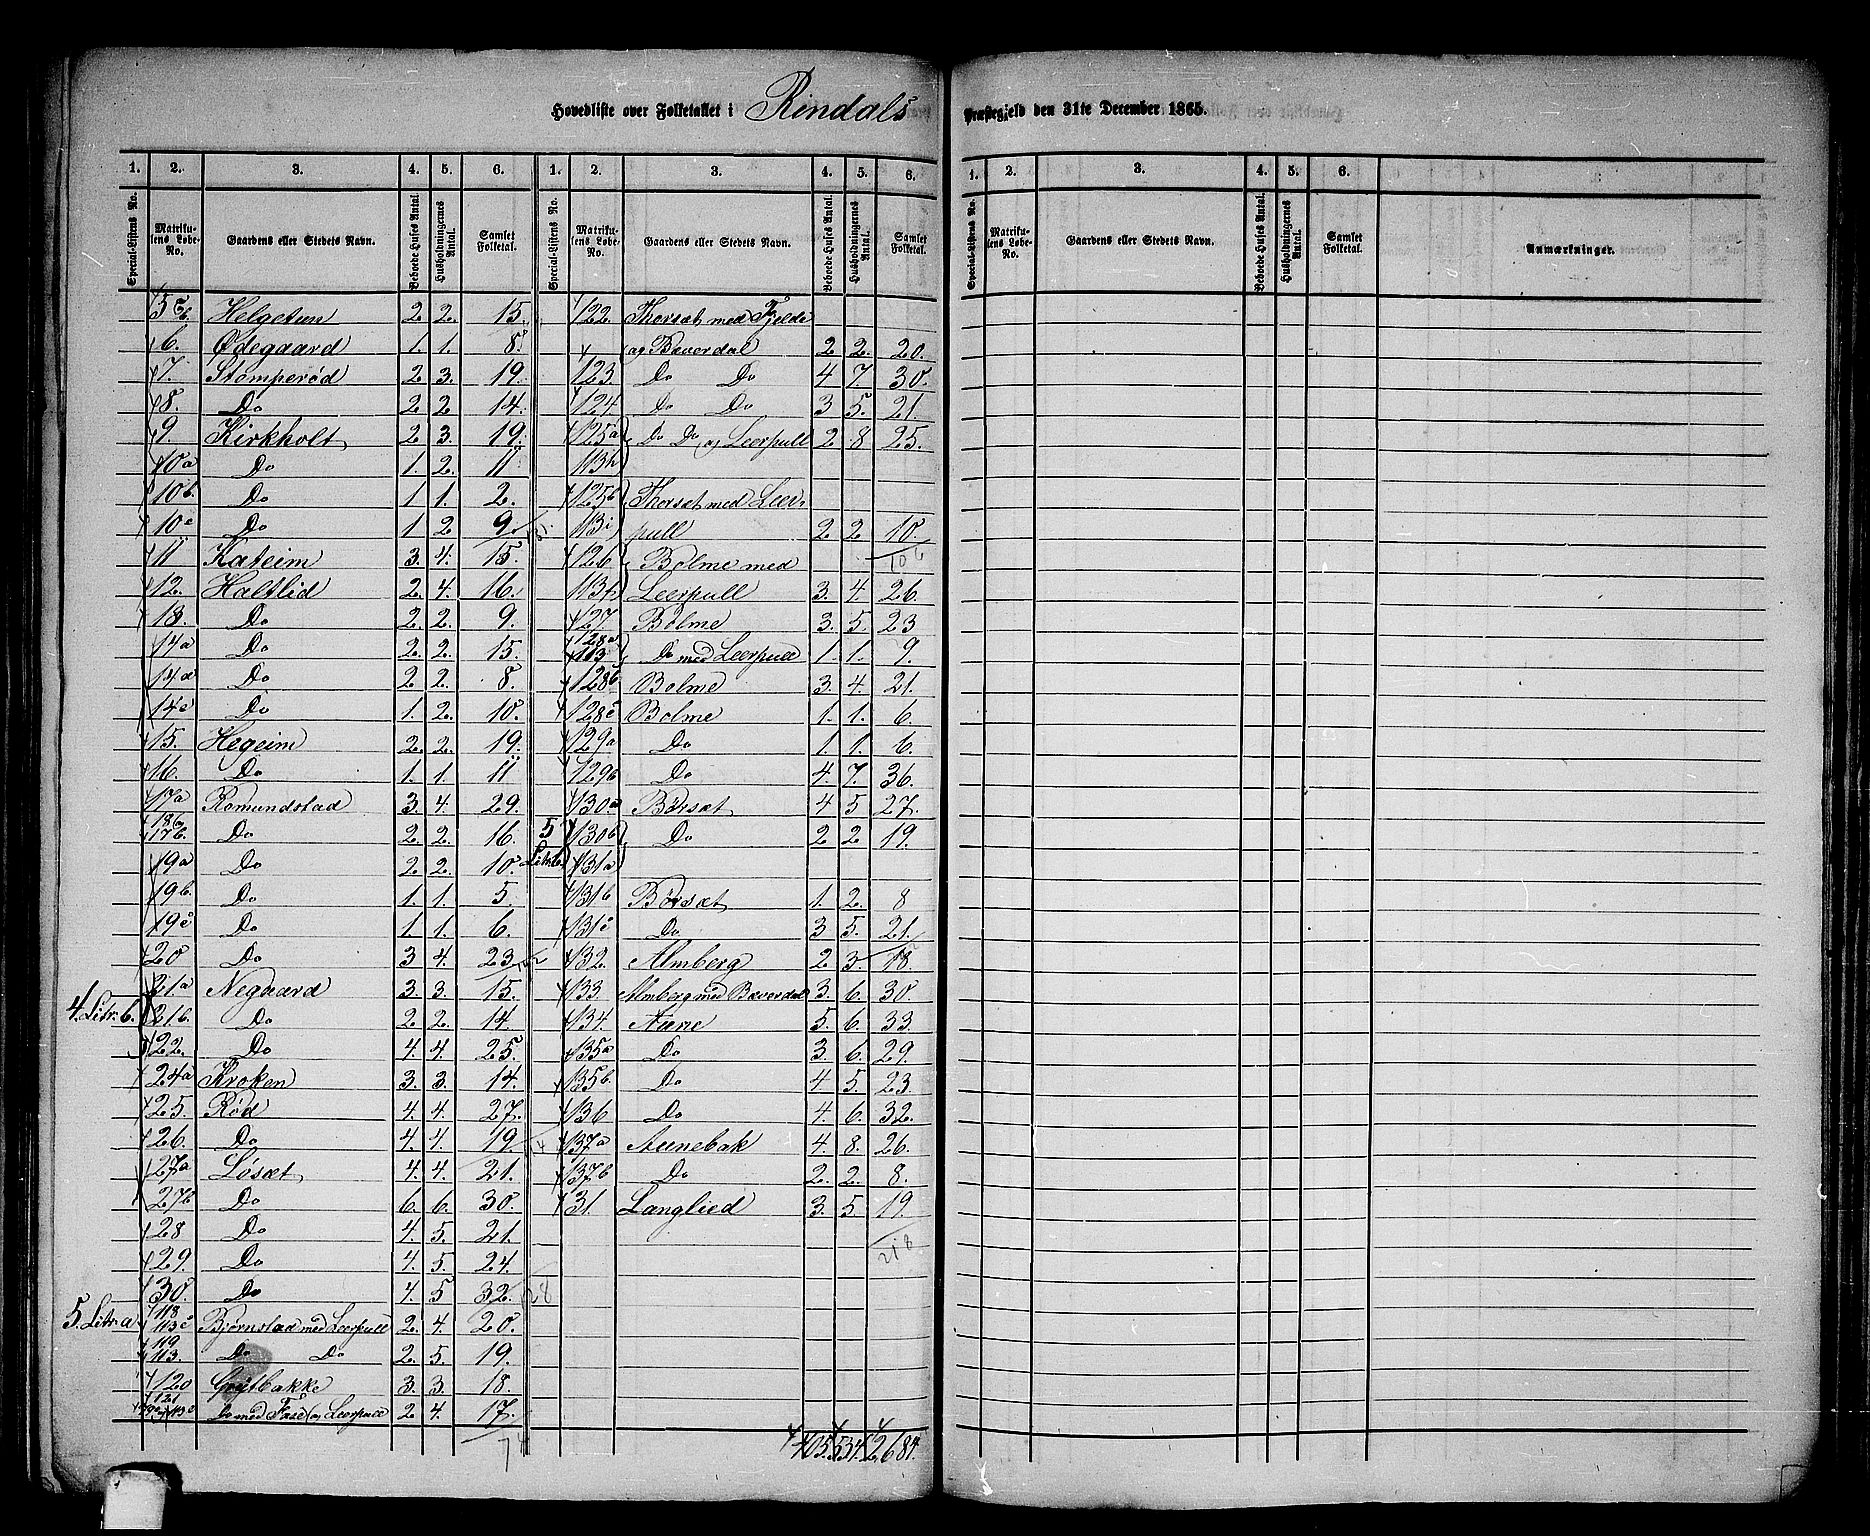 Hovedliste over Folketallet i Rindals Præstegjeld den 31te December 1865.
1. 2. 3. 4. 5. 6. 1. 2. 3. 4. 5. 6.
Special-Listens No. Matrikulens Løbe-No. Gaardens eller Stedets Navn. Beboede Huses Antal. Husholdningernes Antal. Samlet Folketal. Special-Listens No. Matrikulens Løbe-No. Gaardens eller Stedets Navn. Beboede Huses Antal. Husholdningernes Antal. Samlet Folketal.
1. 2. 3. 4. 5. 6.
Special-Listens No. Matrikulens Løbe-No. Gaardens eller Stedets Navn. Beboede Huses Antal. Husholdningernes Antal. Samlet Folketal. Anmærkninger.
Helgetun 2. 2. 15.
6. Ødegaard 1. 1. 8.
7. Stomperød 2. 3. 19.
8. Do 2. 2. 14.
9. Kirkholt 2. 3. 19.
10a Do 1. 2. 11
10b. Do 1. 1. 2.
10c Do 1 2 9.
11 Kateim 3. 4. 15.
12. Haltlid 2. 4. 16.
13. Do 2. 2. 9.
14a Do 2. 2. 15.
Do 2 2. 8.
14c Do 1. 2. 10.
15. Hegeim 2. 2. 19.
16. Do 1. 1. 11
17a Romundstad 3. 4. 29.
17b. Do 2. 2. 16.
19a Do 2 2. 10.
19b. Do 1. 1. 5.
19c Do 1. 1. 6.
20 Do 3 4. 23.
21a Negaard 3. 3. 15.
4. Litr. b. 21b. Do 2 2. 14
22. Do 4. 4. 25.
24a Kroken 3. 3. 14.
25. Rød 4. 4. 27.
26. Do 4. 4. 19.
27a Løsæt 4. 4. 21.
27b Do 6. 6. 30.
28 Do 4. 5. 21.
29. Do 4. 5. 24.
30. Do 4. 5 32.
28
5. Litr. a 118 113c Bjørnstad med Leerpull 2. 4. 20.
119 113. Do Do 2. 5. 19.
120 Grytbakke 3. 3. 18.
121 Do med Fase og Leerpull 2 4. 17.
74
122. Thorsæt med Fjelde
og Bæverdal 2 2. 20.
123. Do Do 4 7. 30.
124 Do Do 3 5. 21.
125a Do Do og Leerpull 2 8 25.
113h
125b Thorsæt med Leer-
113i pull 2 2 10.
106
126 Bolme med
Leerpull 3. 4. 26.
127. Bolme 3. 5. 23
128a 113 Do med Leerpull 1. 1. 9.
128b Bolme 3. 4. 21.
128c Bolme 1. 1. 6.
129a Do 1. 1. 6.
129b Do 4. 7. 36.
130a Børsæt 4 5 27.
5 130b Do 2 2 19.
Litr. b. 131a
131b Børsæt 1. 2. 8
131c Do 3 5. 21.
132. Almberg 2 3. 18.
133. Almberg med Bæverdal 3. 6. 30.
134. Aune 5. 6. 33.
135a Do 3. 6. 29.
135b. Do 4 5. 23.
136 Do 4. 6. 32.
137a Aunebak 4. 8. 26.
137b Do 2. 2. 8.
31. Langlied 3. 5. 19.
218
405. 534. 2684.